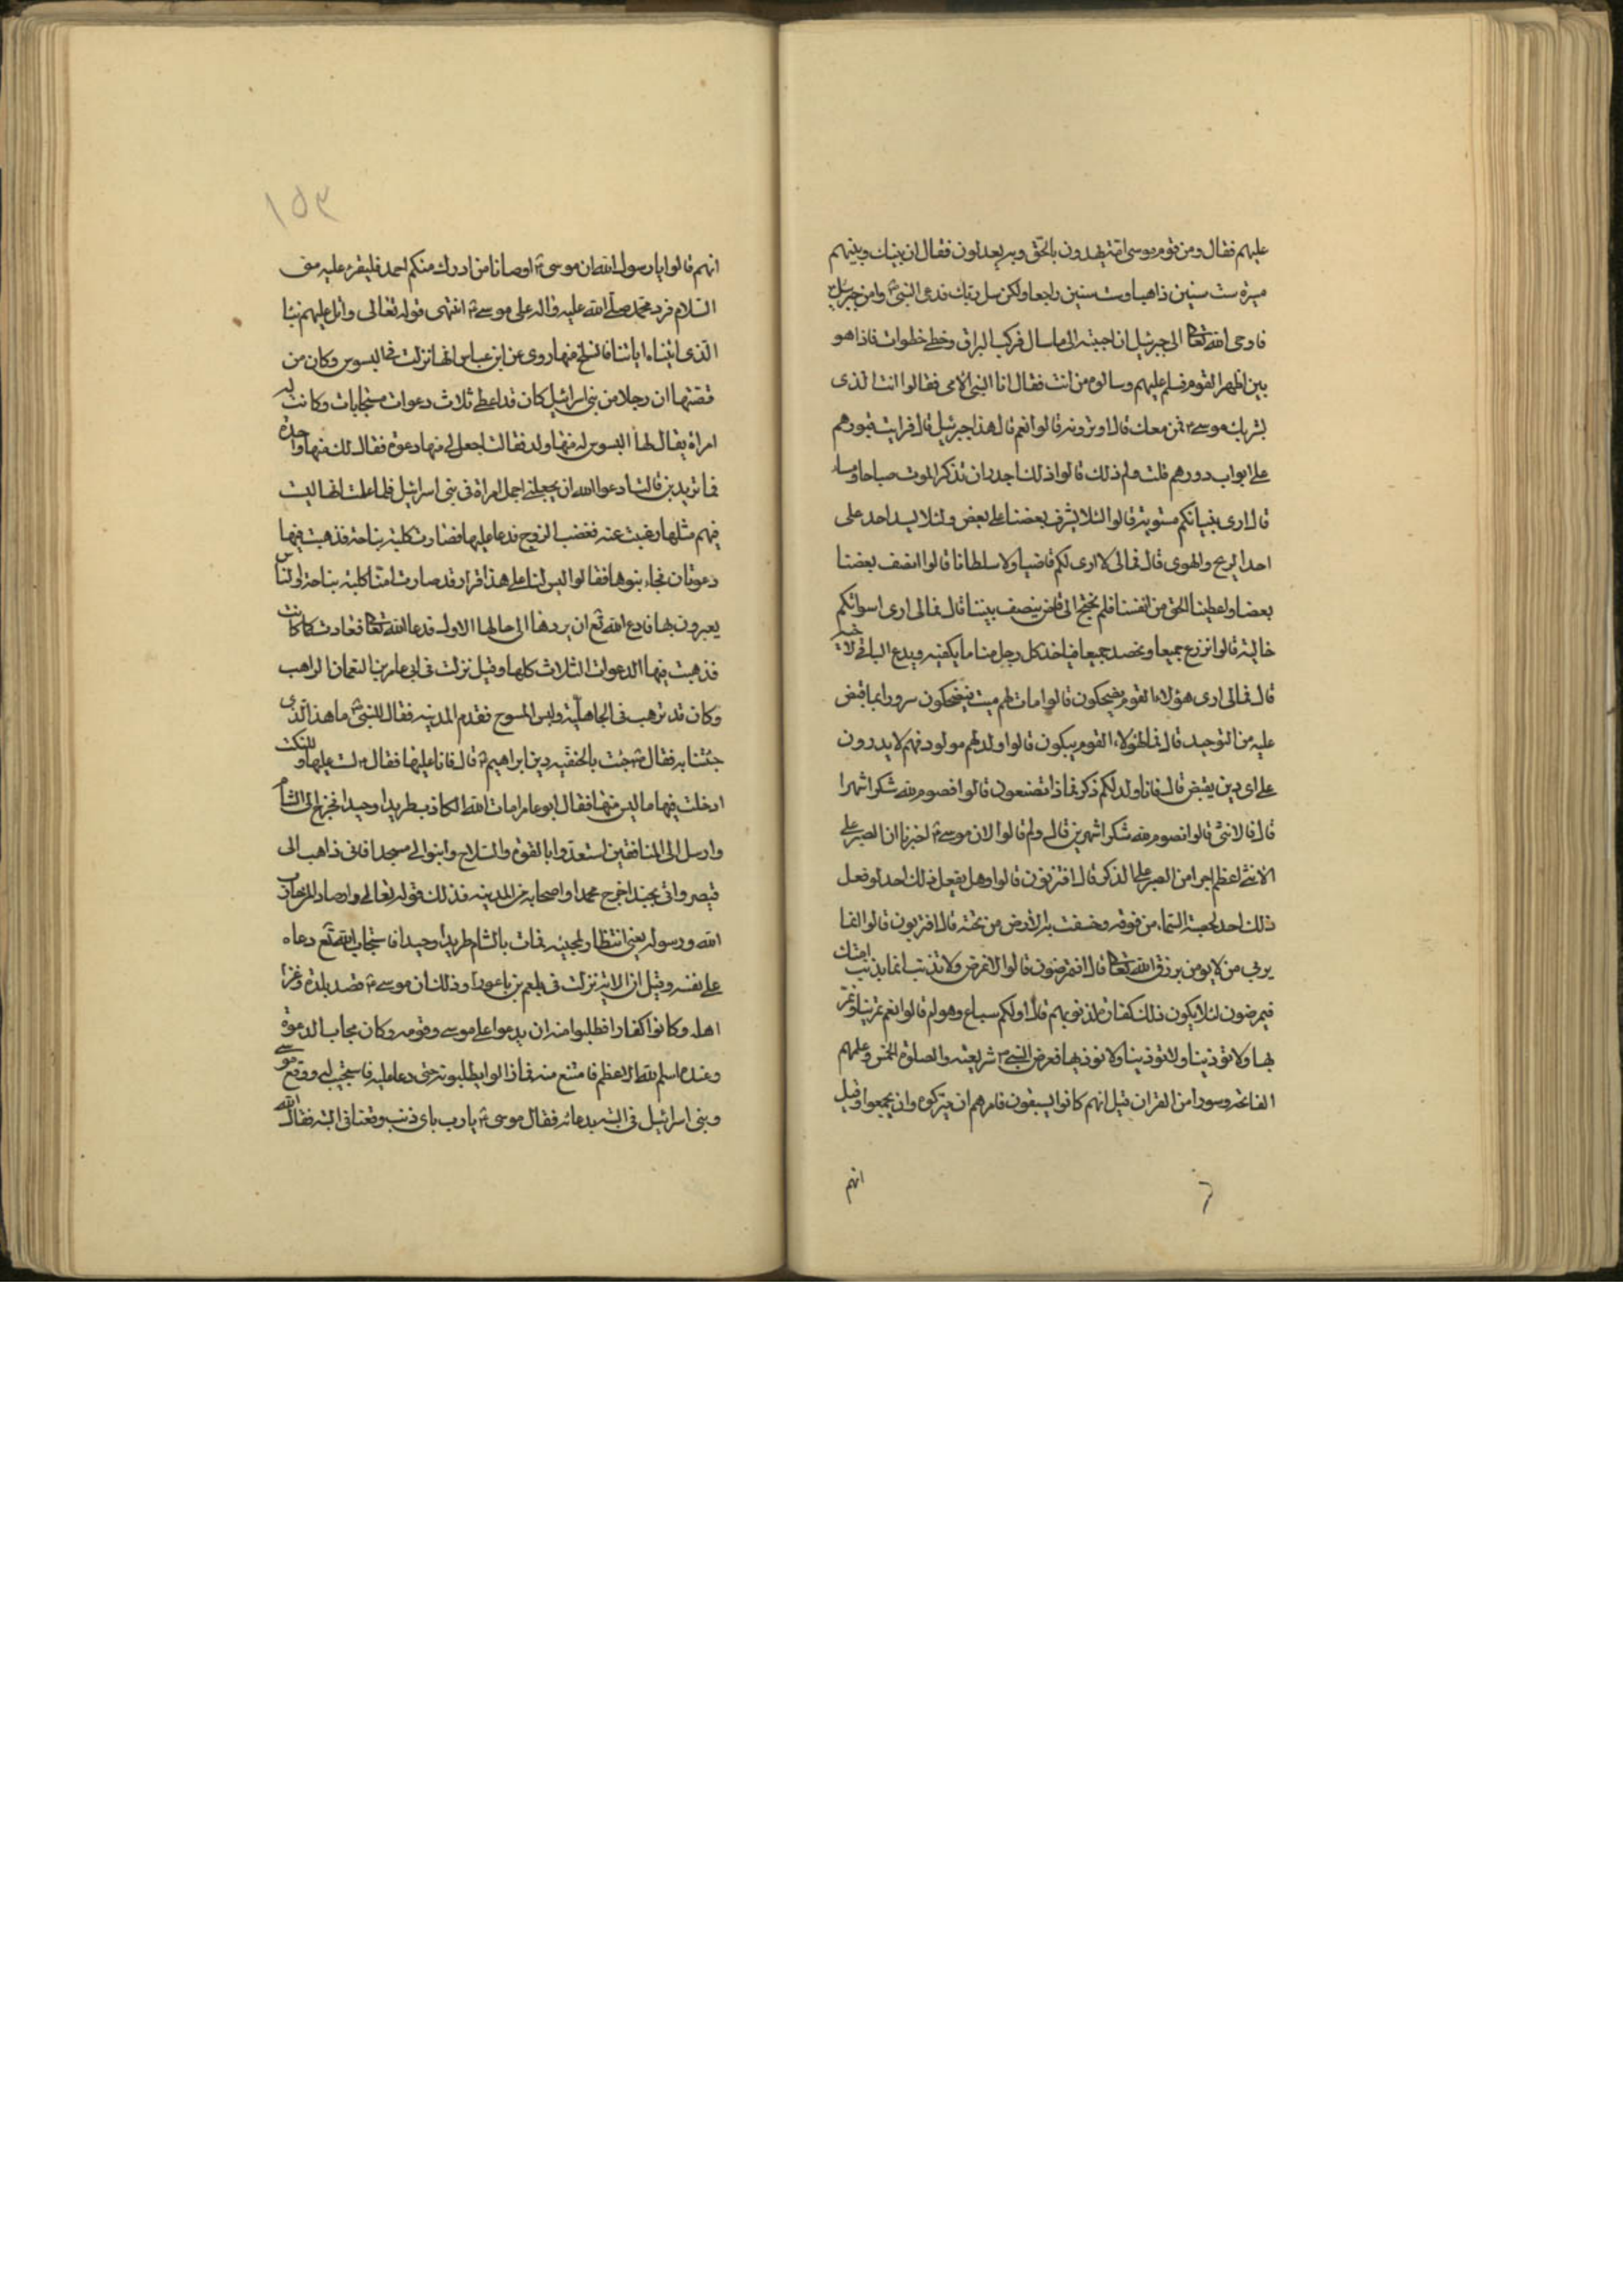 عليهم فقال ومن قوم موسى امة يهدون بالحق وبه يعدلون فقال ان بينك وبينهم
مسيرة ست سنين ذاهبا وست سنين راجعا ولكن سل ربك فدعى النبى وامن جبرئيل
فاوحى الله تعالى الى جبرئيل انا اجبته الى ما سال فركب البراق وخطى خطوات فاذا هو
بين اظهر القوم فسلم عليهم وسالوه من انت فقال انا النبى الامى فقالوا انت الذى
بشر بك موسى فمن معك قال او ترونه قالوا نعم قال هذا جبرئيل قال فرايت قبورهم
على ابواب دورهم قلت ولم ذلك قالوا ذلك اجدر ان نذكر الموت صباحا ومساء
قال ارى بنيانكم مستوية قالوا لئلا يشرف بعضنا على بعض ولئلا يسد احد على
احد الريح والهوى قال فمالى لا ارى لكم قاضيا ولا سلطانا قالوا انصف بعضنا
بعضا واعطينا الحق من انفسنا فلم نحتج الى قاض ينصف بيننا قال فمالى ارى اسواقكم
خالية قالوا نزرع جميعا ونحصد جميعا فياخذ كل رجل منا ما يكفيه ويدع الباقى لاخيه
قال فمالى ارى هؤلاء القوم يضحكون قالوا مات لهم ميت فيضحكون سرورا بما قبض
عليه من التوحيد قال فما لهؤلاء القوم يبكون قالوا ولد لهم مولود فهم لا يدرون
على اى دين يقبض قال فاذا ولد لكم ذكر فماذا تصنعون قالوا نصوم لله شكرا شهرا
قال فالانثى قالوا نصوم لله شكرا شهرين قال ولم قالوا لان موسى اخبرنا ان الصبر على
الانثى اعظم اجرا من الصبر على الذكر قال افتزنون قالوا وهل يفعل ذلك احد لو فعل
ذلك احد لحصبته السماء من فوقه وخسفت به الارض من تحته قال افتربون قالوا انما
يربى من لا يومن برزق الله تعالى قال افتمرضون قالوا لا نمرض ولا نذنب انما يذنب امتك
فيمرضون لئلا يكون ذلك كفارة لذنوبهم قال اولكم سباع وهوام قالوا نعم تمر بنا ونمر
بها ولا تؤذينا ولا تؤذينا ولا نوذيها فعرض النبى شريعته والصلوة الخمس وعلمهم
الفاتحة وسورا من القران قيل انهم كانوا يسبتون فامرهم ان يتركوه وان يجمعوا وقيل
انهم
١٥٣
انهم قالوا يا رسول الله ان موسى اوصانا من ادرك منكم احمد فليقرء عليه منى
السلام فرد محمد صلى الله عليه واله على موسى انتهى قوله تعالى واتل عليهم نبا
الذى اتيناه اياتنا فانسلخ منها روى عن ابن عباس انها نزلت فى البسوس وكان من
قصتها ان رجلا من بنى اسرائيل كان قد اعطى ثلاث دعوات مستجابات وكانت له
امراة يقال لها البسوس له منها ولد فقالت اجعل لى منها دعوة فقال لك منها واحدة
فما تريدين قالت ادعوا الله ان يجعلنى اجمل امراة فى بنى اسرائيل فلما علمت انها ليست
فيهم مثلها رغبت عنه فغضب الزوج فدعا عليها فصارت كلبة نباحة فذهبت فيها
دعوتان فجاء بنوها فقالوا ليس لنا على هذا قرار قد صارت امنا كلبة نباحة الناس
يعيرون بها فادع الله تع ان يردها الى حالها الاول فدعا الله تعالى فعادت كما كانت
فذهبت فيها الدعوات الثلاث كلها وقيل نزلت فى ابى عامر بن النعمان الراهب
وكان قد ترهب فى الجاهلية ولبس المسوح فقدم المدينة فقال للنبى ما هذا الذى
جئتنا به فقال جئت بالحنفية دين ابراهيم قال فانا عليها فقال لست عليها ولكنك
ادخلت فيها ما ليس منها فقال ابو عامر امات الله الكاذب طريدا وحيدا فخرج الى الشام
وارسل الى المنافقين استعدوا بالقوة والسلاح وابنوا لى مسجدا فانى ذاهب الى
قيصر واتى بجند اخرج محمدا واصحابه من المدينة فذلك قوله تعالى وارصادا لمن حارب
الله ورسوله يعنى انتظارا لمجيئه فمات بالشام طريدا وحيدا فاستجاب الله تع دعاه
على نفسه وقيل ان الاية نزلت فى بلعم بن باعورا وذلك ان موسى قصد بلده وغزا
اهله وكانوا كفارا فطلبوا منه ان يدعوا على موسى وقومه وكان مجاب الدعوة
وعنده اسم الله الاعظم فامتنع منه فما زالوا يطلبونه حتى دعا عليه فاستجيب له ووقع موسى
وبنى اسرائيل فى التيه بدعائه فقال موسى يا رب باى ذنب وقعنا فى التيه فقال الله